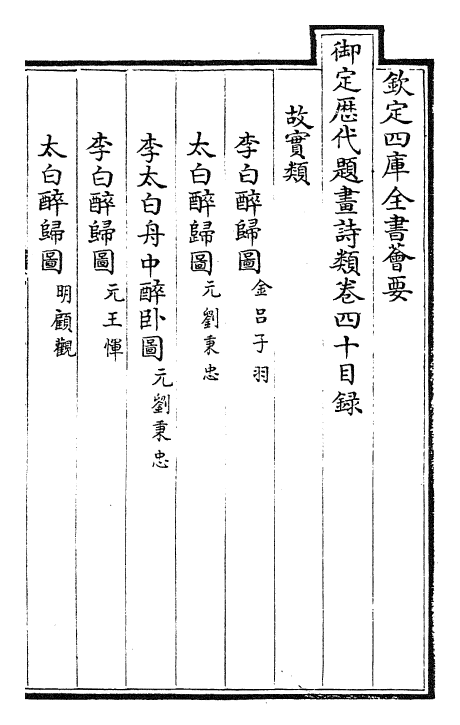 欽定四庫全書薈要
御定歷代題畫詩類卷四十目録
故實類
李白醉歸圖 金吕子羽
太白醉歸圖 元劉秉忠
李太白舟中醉卧圖 元劉秉忠
李白醉歸圖 元王惲
太白醉歸圖 明顧觀